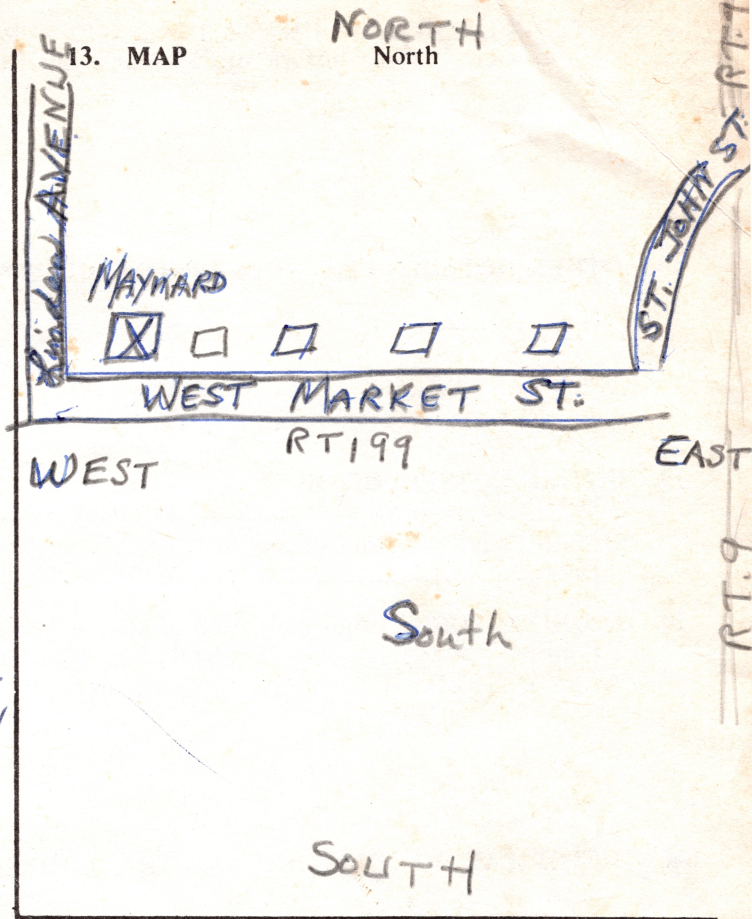 NORTH
13. MAP North
Linden AVENUE
ST. JOHN ST.
RT. 9
MAYNARD
WEST MARKET ST.
RT 199
WEST
EAST
RT. 9
South
SOUTH